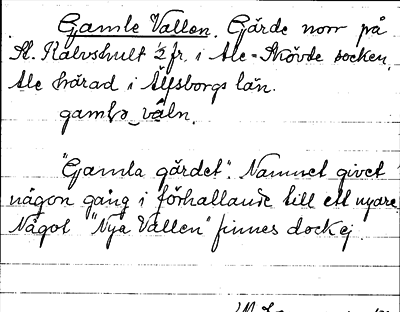 Gamle Vallen. Gärde norr på
St. Kalvshult ½ fr. i Ale-Skövde socken,
Ale härad i Älfsborgs län.
gamlə väln.
"Gamla gärdet". Namnet givet
någon gång i förhållande till ett nyare
Något "Nya Vallen" finnes dock ej.